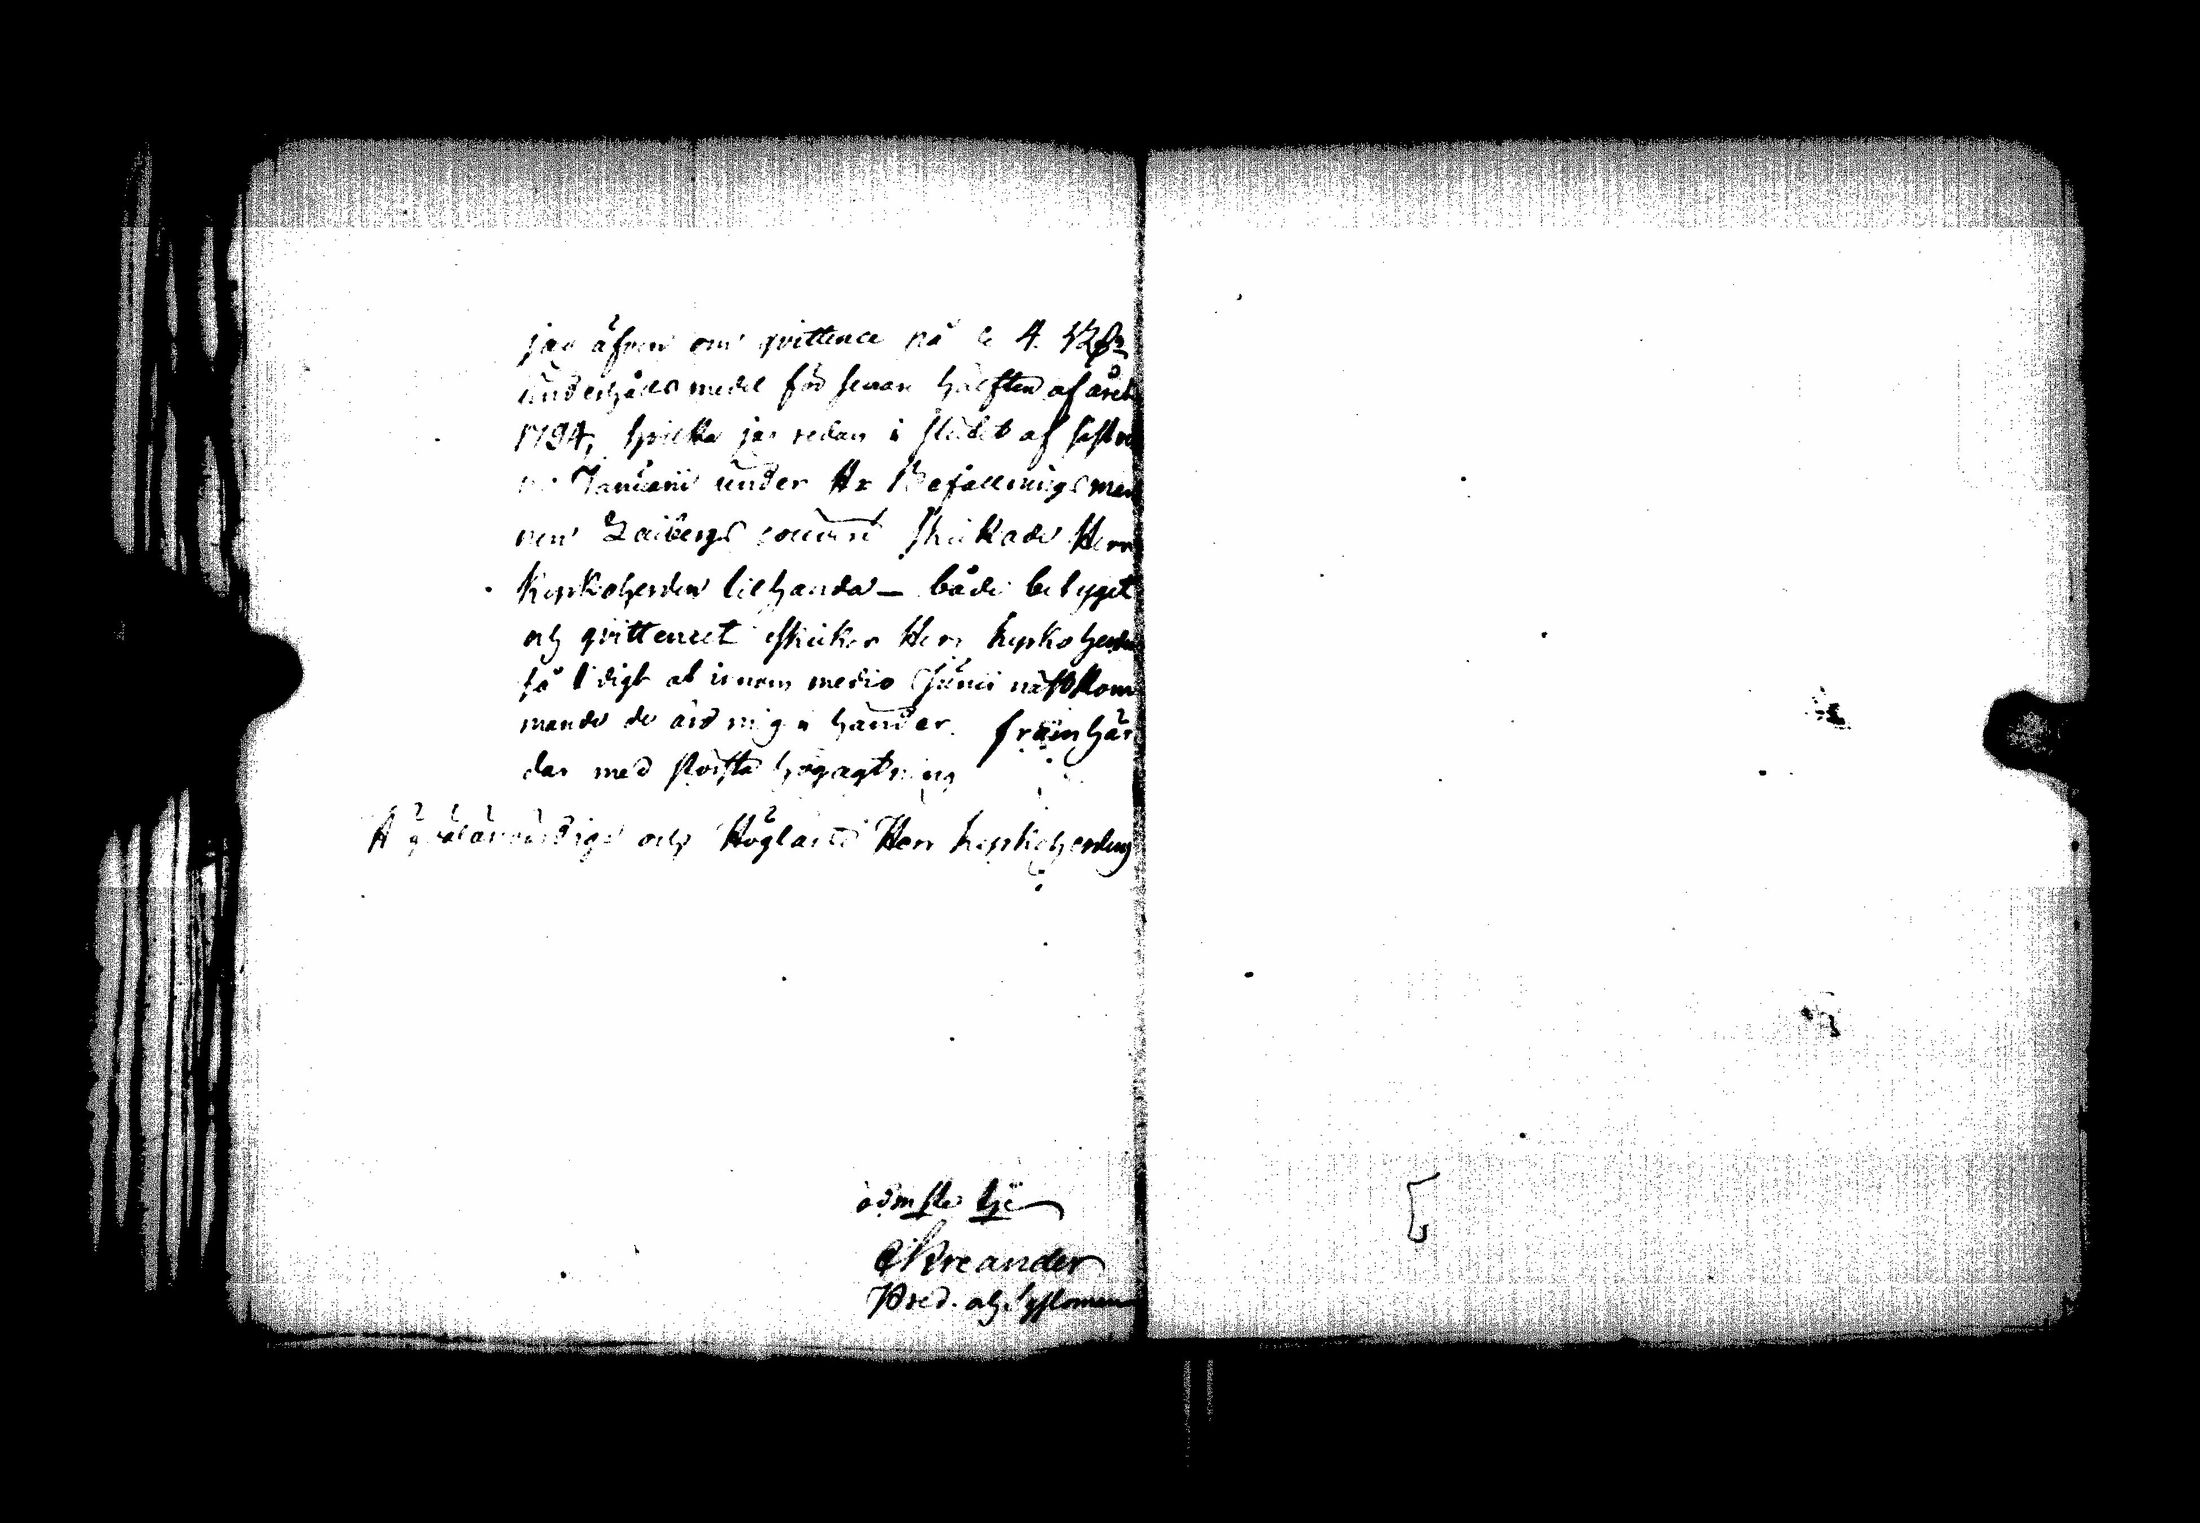 jag äfven om qvittence på 4. 42
underhålls medel för senare hälften af året
1794, hvilka jag redan i slutet af sistne
Januarii under Hr Befallningsman
nen Zaibergs couvert skickade Herr
Kyrkoherden tilhanda — både betyget
och qvittencet skickar Herr Kyrkoherden
så tidigt at innom medio Junii nästkom
mande de äro mig i händer. framhär
dar med största högagtning
Högvälärevördige och Höglärde Herr Kyrkoherdens
ödmste tje
Kreander
Pred. och Syslomann